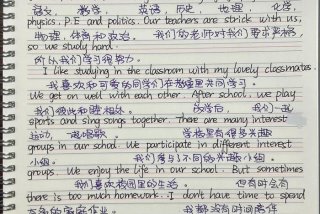 语文, 数学, 英语, 历史, 地理, 化学,
physics, P.E and politics. Our teachers are strick with us,
物理, 体育和政治. 我们的老师对我们要求严格,
so we study hard.
所以我们学习很努力.
I like studying in the classroom with my lovely classmates.
我喜欢和可爱的同学们在教室里共同学习.
We get on well with each other. After school, we play
我们彼此和睦相处. 放学后, 我们一起
sports and sing songs together. There are many interest
运动, 唱唱歌. 学校里有很多兴趣
groups in our school. We participate in different interest
小组. 我们参与了不同的兴趣小组.
groups. We enjoy the life in our school. But sometimes
我们喜欢校园里的生活. 但有时会有
there is too much homework. I don't have time to spend
太多的家庭作业. 我都没有时间